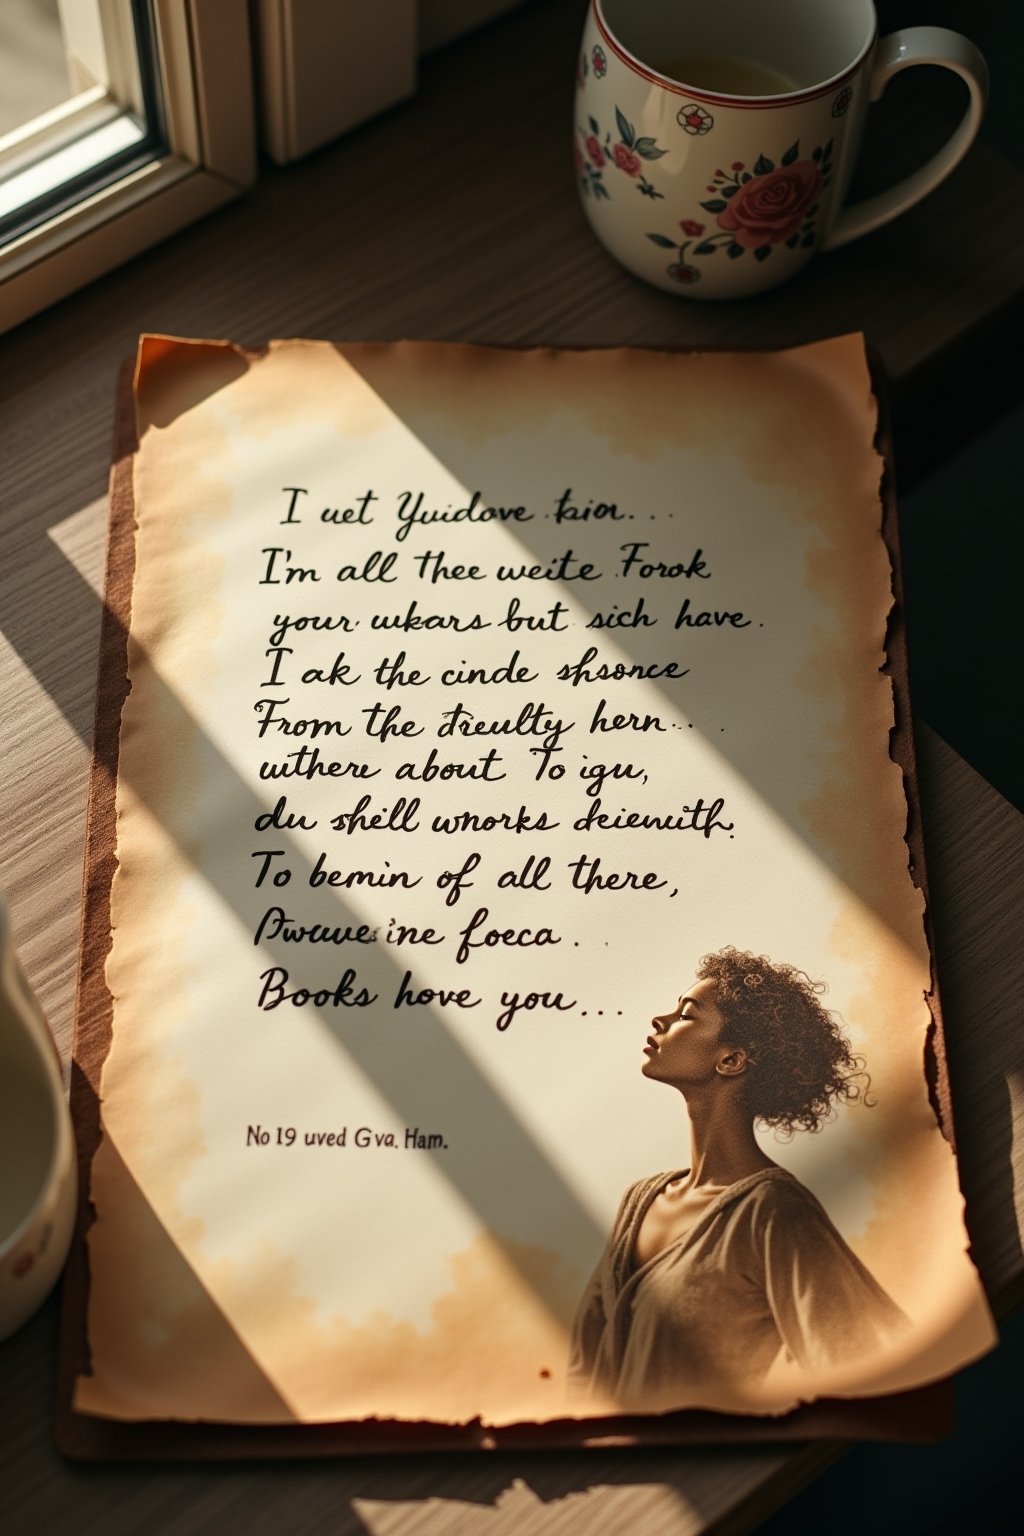 I uet Yuidove tior...
I'm all thee weite Forok
your ukars but sich have.
I ak the cinde shsonce
From the dieulty hern...
uithere about To igu,
du shell wnorks deienuith.
To bemin of all there,
ine foeca.
Books hove you...
No 19 uved Gva. Ham.